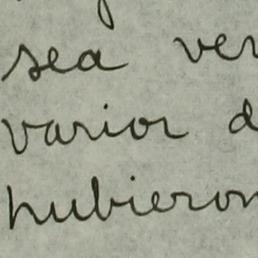 sea ver
varior d
hubieron